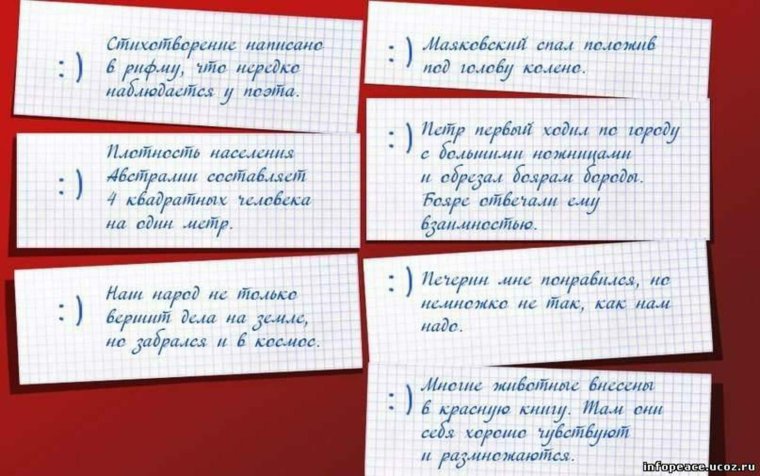 :)
Стихотворение написано
в рифму, что нередко
наблюдается у поэта.
:)
Плотность населения
Австралии составляет
4 квадратных человека
на один метр.
:)
Наш народ не только
вершит дела на земле,
но забрался и в космос.
:)
Маяковский спал положив
под голову колено.
:)
Петр первый ходил по городу
с большими ножницами
и обрезал боярам бороды.
Бояре отвечали ему
взаимностью.
:)
Печерин мне понравился, но
немножко не так, как нам
надо.
:)
Многие животные внесены
в красную книгу. Там они
себя хорошо чувствуют
и размножаются.
infopeace.ucoz.ru